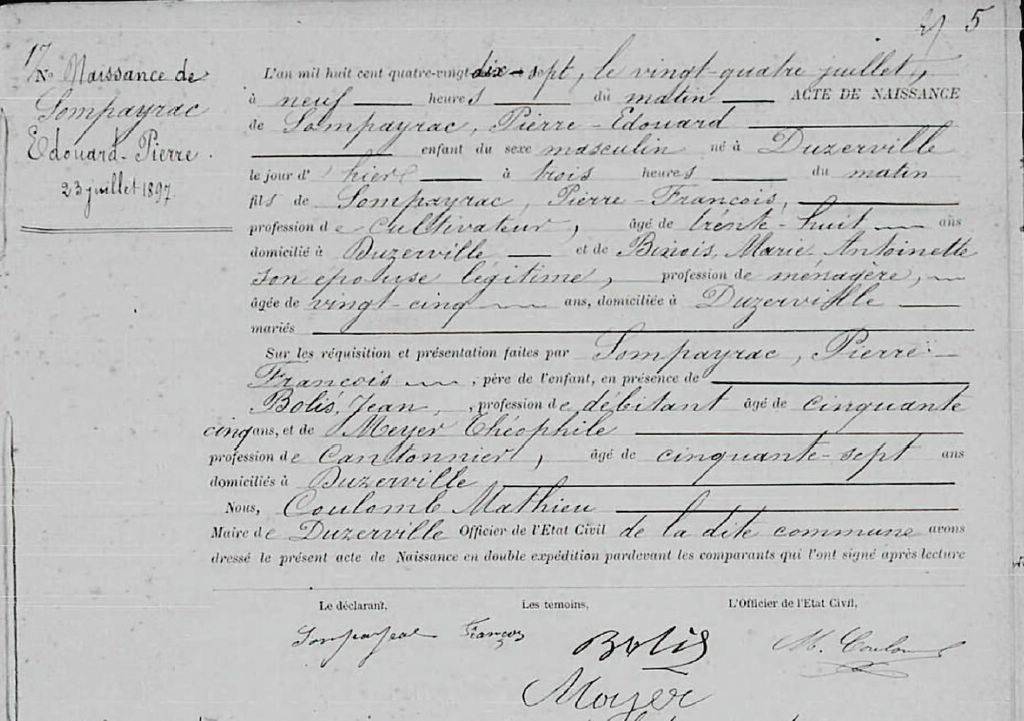 5
17
No Naissance de
Sompayrac
Edouard-Pierre.
23 juillet 1897
L'an mil huit cent quatre-vingt-dix-sept, le vingt-quatre juillet,
à neuf heures du matin ACTE DE NAISSANCE
de Sompayrac, Pierre-Edouard
enfant du sexe masculin né à Duzerville
le jour d'hier à trois heures du matin
fils de Sompayrac, Pierre-François,
profession de cultivateur, âgé de trente-huit ans
domicilié à Duzerville et de Binois, Marie Antoinette
son épouse légitime, profession de ménagère,
âgée de vingt-cinq ans, domiciliée à Duzerville
mariés
Sur les réquisition et présentation faites par Sompayrac, Pierre-
François, père de l'enfant, en présence de
Bolis, Jean, profession de débitant âgé de cinquante
cinq ans, et de Meyer Théophile
profession de Cantonnier, âgé de cinquante-sept ans
domiciliés à Duzerville
Nous, Coulomb Mathieu
Maire de Duzerville Officier de l'Etat Civil de la dite commune avons
dressé le présent acte de Naissance en double expédition pardevant les comparants qui l'ont signé après lecture
Le déclarant, Les temoins, L'Officier de l'Etat Civil,
Sompayrac François Bolis M. Coulomb
Moyer